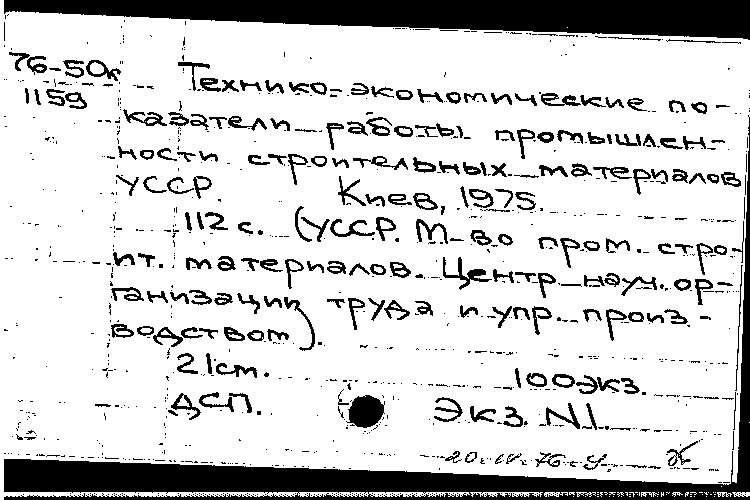 76-50к
1159
Технико-экономические по-
казатели работы промышлен-
ности строительных материалов
УССР. Киев, 1975.
112 с. (УССР. М-во пром. стро-
ит. материалов. Центр науч. ор-
ганизации труда и упр. произ-
водством).
21см. 100экз.
ДСП. Экз. N1.
20.IV.76.